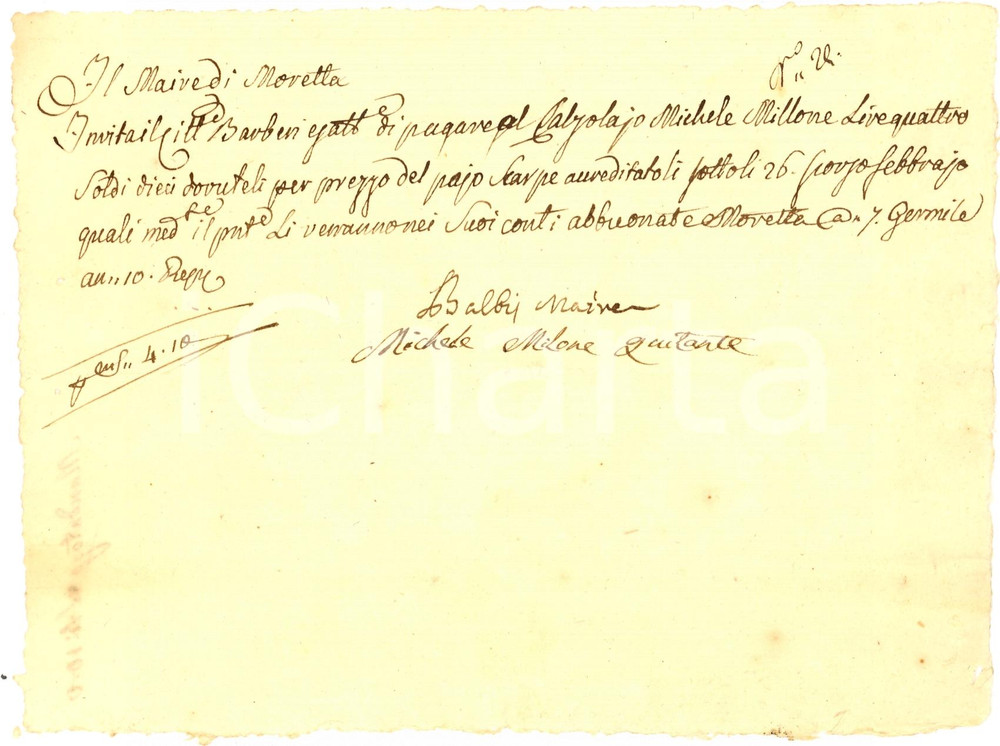 N.o 28.
Il Maire di Moretta
Invita il Citt.e Barberi Esatt.e di pagare al Calzolajo Michele Millone Lire quattro
Soldi dieci dovuteli per prezzo del pajo Scarpe accreditatoli sotto li 26. scorso febbrajo
quali med.te il pnte Li verranno nei Suoi conti abbuonate Moretta a 7. Germile
an. 10. Rep.
Balbij Maire
Michele Milone Quitante
4.10
iCharta